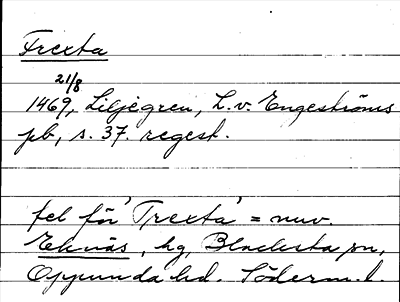 Frexta
21/8
1469, Liljegren, L. v. Engeströms
pb, s. 37. regest.
fel för 'Trexta' = nuv.
Eknäs, hg, Blacksta sn,
Oppunda hd. Söderm. l.